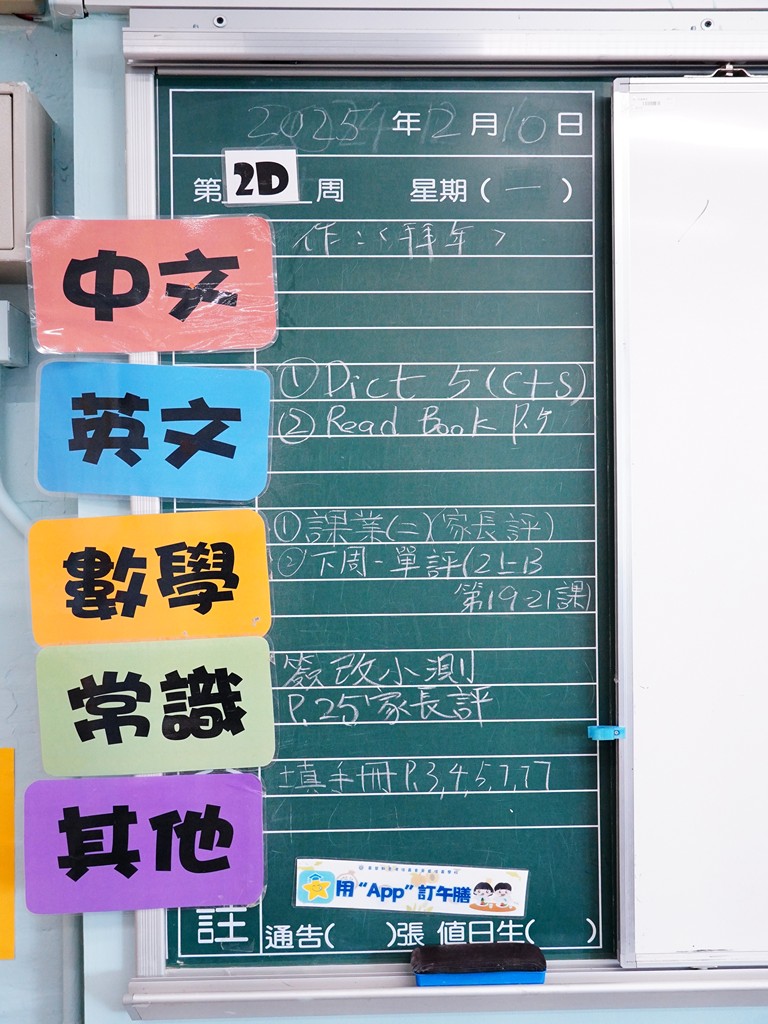 2025 年 12 月 10 日
第 2D 周 星期 ( 一 )
中文
作：〈拜年〉
英文
① Dict 5 (C+S)
② Read Book P.5
數學
① 課業(二)(家長評)
② 下周一單評(21-B
第19-21課)
常識
簽改小測
P.25家長評
其他
填手冊P.3,4,5,7,77
用 “App” 訂午膳
註
通告( )張 值日生( )